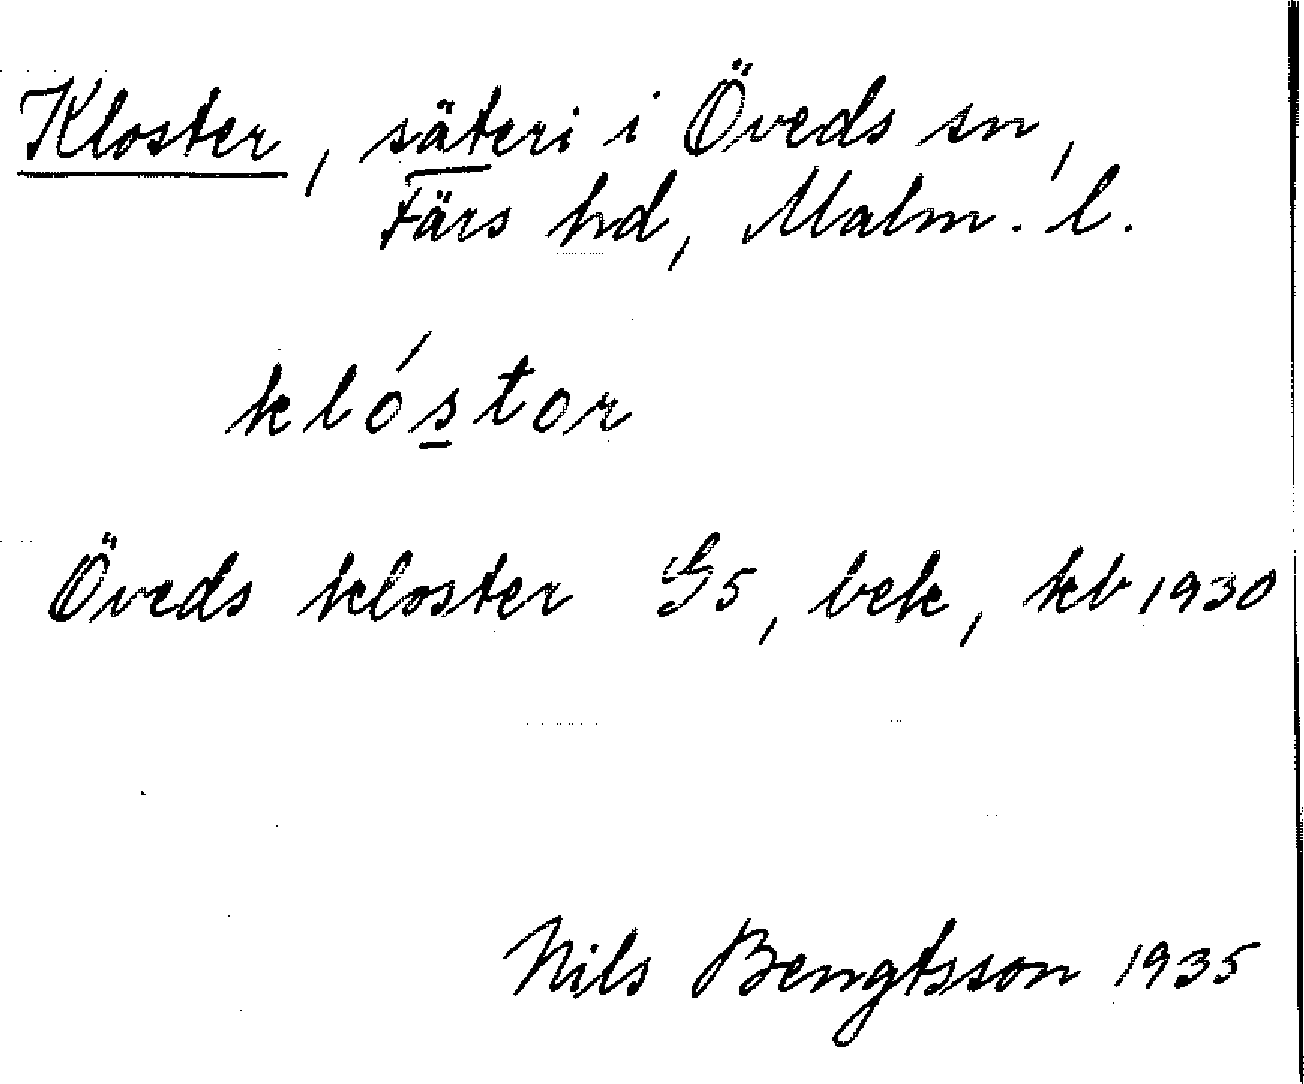 Kloster, säteri i Öveds sn,
Färs hd, Malm. l.
klós̱tor
Öveds kloster G5, bek, kb 1930
Nils Bengtsson 1935